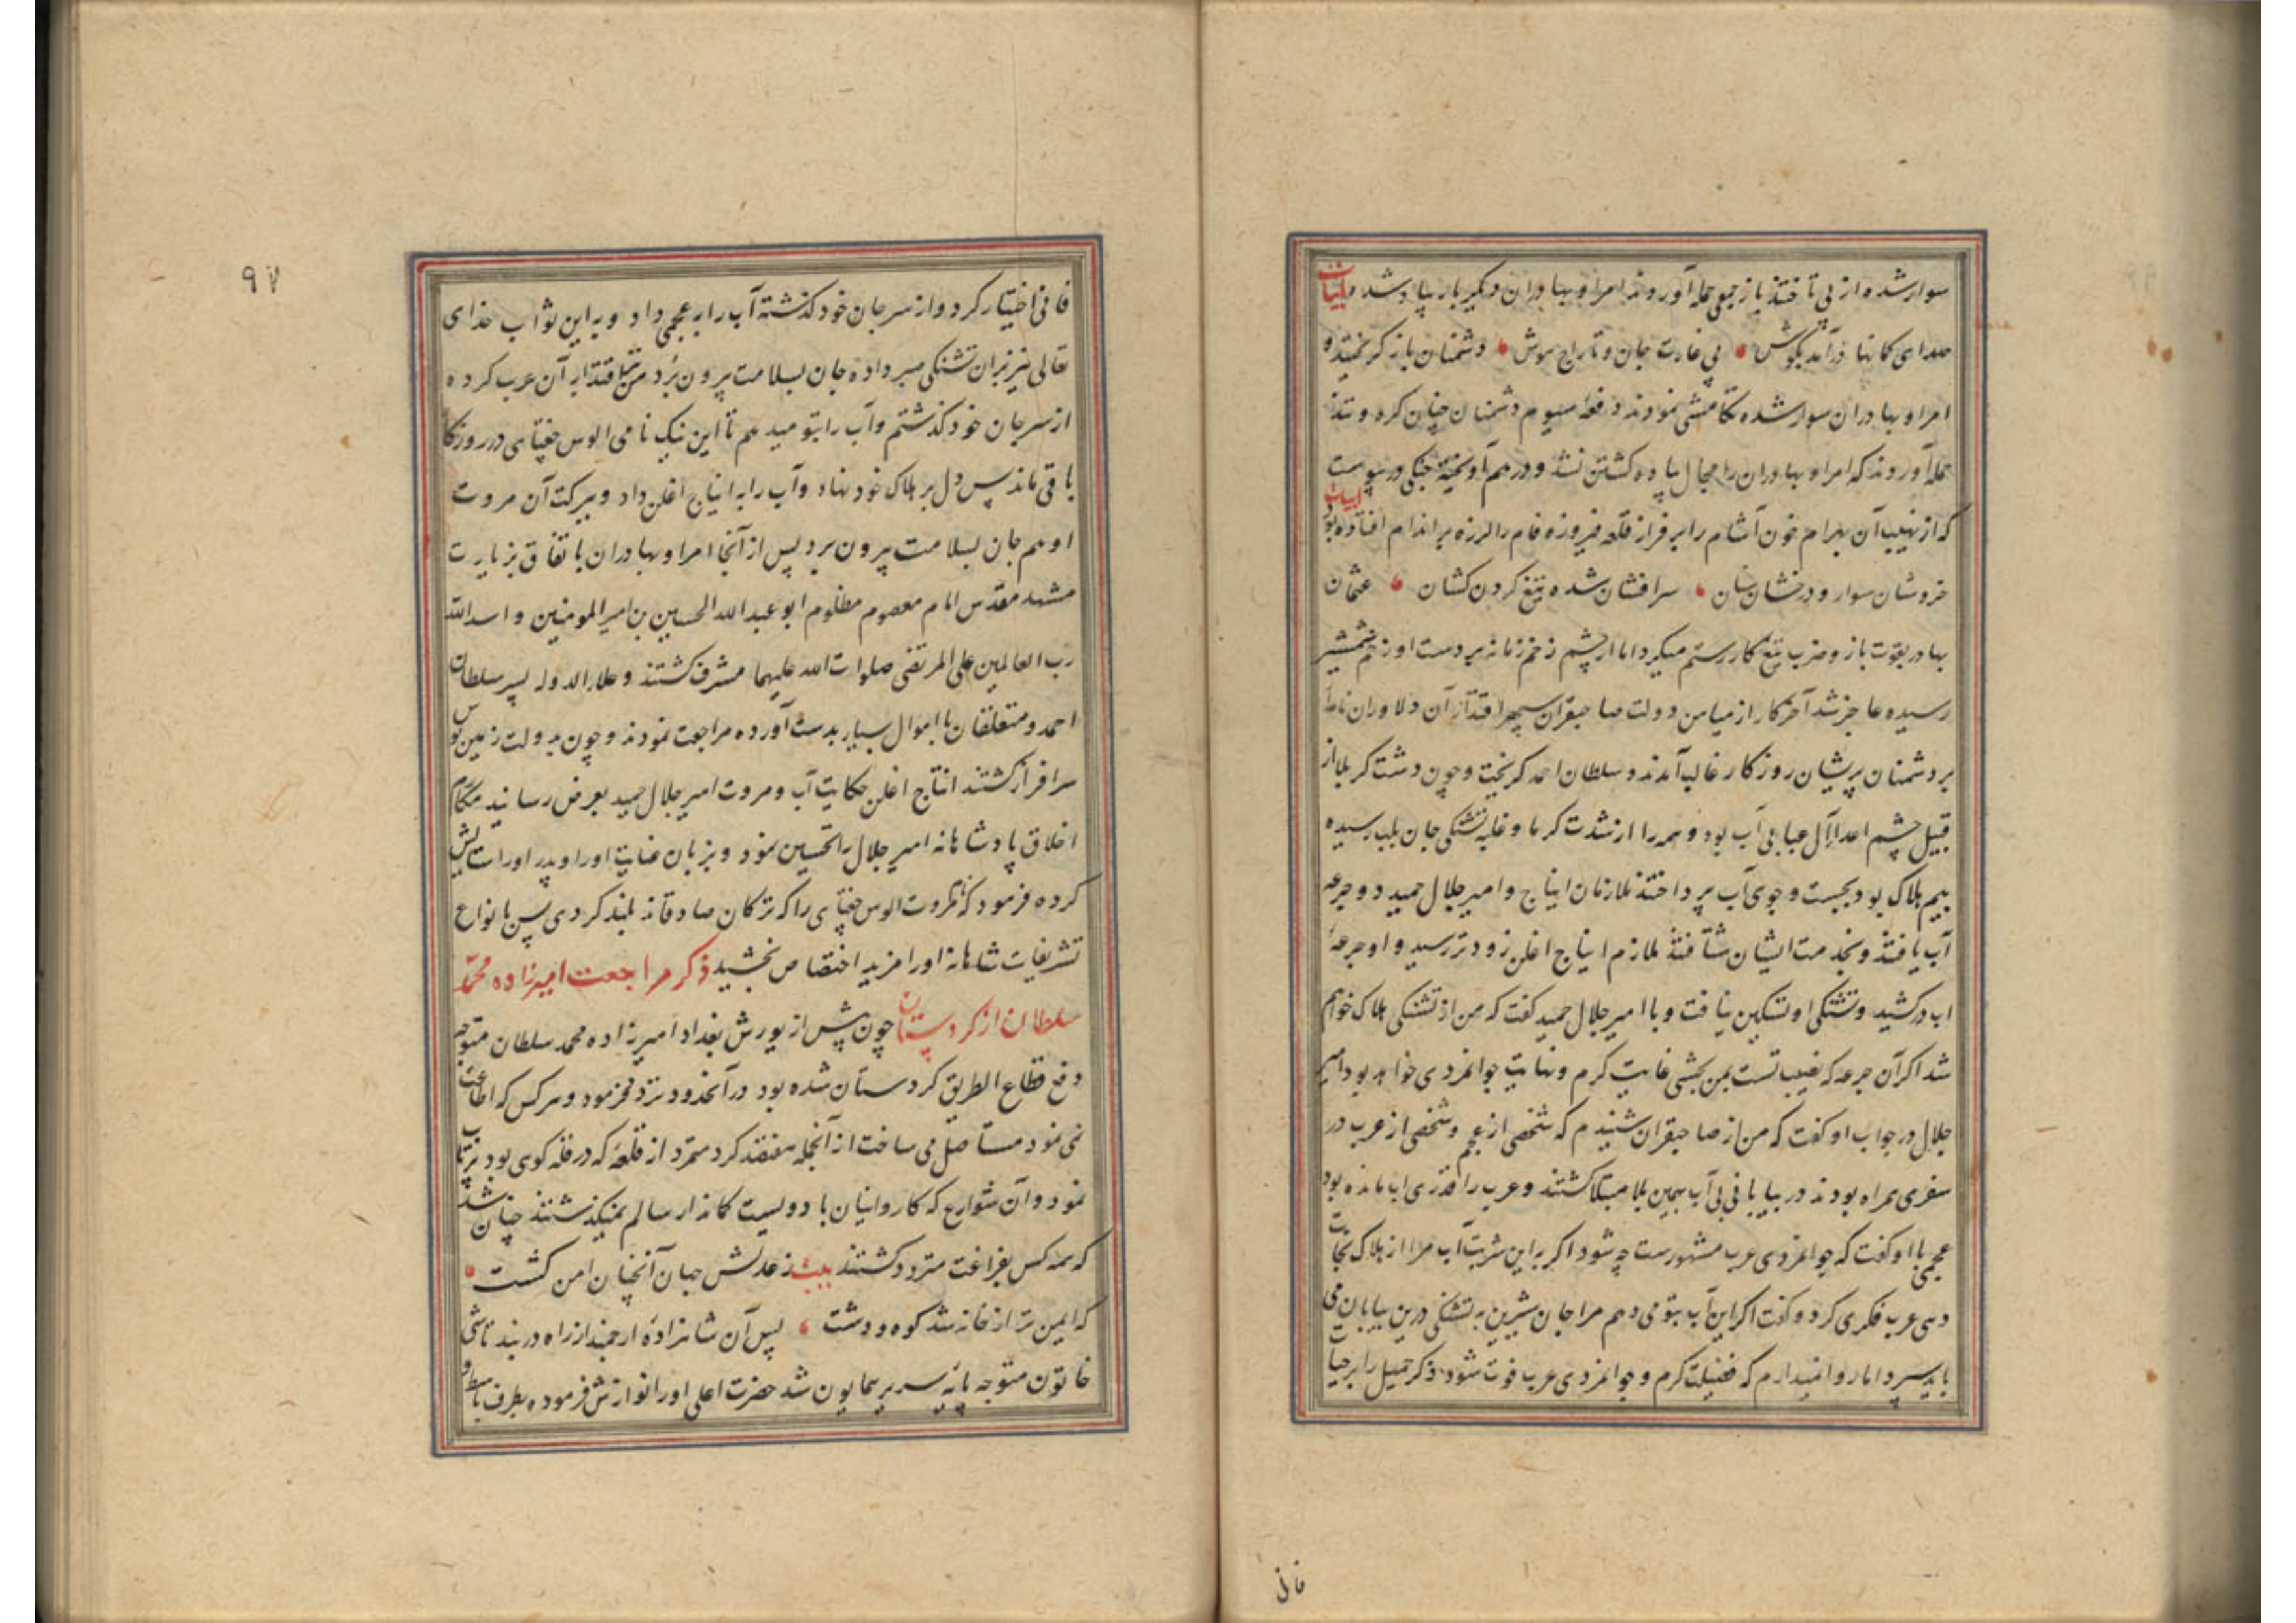 سوار شده از پی تاختند باز جمعی حمله آوردند امرا و بهادران دیگر بار پیاده شدند ابیات
صدای کمانها درآمد بگوش پی غارت جان و تاراج هوش دشمنان باز گریختند و
امرا و بهادران سوار شده تکامشی نمودند دفعهٔ سیوم دشمنان چنان کره و تند
حمله آوردند که امرا و بهادران را مجال پیاده کشتن نشد و درهم آویخته جنگی درپیوست
که از نهیب آن بهرام خون آشام را بر فراز قلعه فیروزه فام را لرزه بر اندام افتاده بود ابیات
خروشان سوار و درخشان سنان سرافشان شده تیغ گردن کشان عثمان
بهادر بقوت بازو ضرب تیغ کار رستم میکرد اما از چشم زخم زمانه بر دست او زخم شمشیر
رسیده عاجز شد آخر کار از میامن دولت صاحبقران سپهر اقتدار آن دلاوران نامدار
بر دشمنان پریشان روزکار غالب آمدند و سلطان احمد کریخت و چون دشت کربلا از
قبیل چشم اعداء آل عبا بی آب بود و همه را از شدت گرما و غلبه تشنکی جان بلب رسیده
بیم هلاک بود بجست و جوی آب پرداختند ملازمان ایناج و امیر جلال حمید دو جرعه
آب یافتند و بخدمت ایشان شتافتند ملازم ایناج اغلن زودتر رسید و او جرعهٔ
اب درکشید و تشنکی او تسکین نیافت و با امیر جلال حمید کفت که من از تشنکی هلاک خواهم
شد اکر آن جرعه که نصیب تست بمن بخشی غایت کرم و نهایت جوانمردی خواهد بود امیر
جلال در جواب او کفت که من از صاحبقران شنیدم که شخصی از عجم و شخصی از عرب در
سفری همراه بودند در بیابانی بی آب بهمین بلا مبتلا کشتند و عرب را قدری اب مانده بود
عجمی با او کفت که جوانمردی عرب مشهورست چه شود اکر به این شربت آب مرا از هلاک نجات
دهی عرب فکری کرد و کفت اکر این آب بتو می دهم مرا جان شیرین به تشنکی درین بیابان می
باید سپرد اما روا نمیدارم که فضیلت کرم و جوانمردی عرب فوت شود ذکر جمیل را بر حیات
فانی
۹۷
فانی اختیار کرد و از سر جان خود کذشته آب را به عجمی داد و به این ثواب خدای
تعالی نیز بران تشنکی صبر داده جان بسلامت بیرون برد من نیز اقتدا به آن عرب کرده
از سر جان خود کذشتم و آب را بتو میدهم تا این نیک نامی الوس جغتای در روزکار
باقی ماند پس دل بر هلاک خود نهاد و آب را به ایناج اغلن داد و ببرکت آن مروت
او هم جان بسلامت بیرون برد پس از آنجا امرا و بهادران باتفاق بزیارت
مشهد مقدس امام معصوم مظلوم ابو عبد الله الحسین بن امیر المومنین و اسد الله
رب العالمین علی المرتضی صلوات الله علیهما مشرف کشتند و علاء الدوله پسر سلطان
احمد و متعلقان با اموال بسیار بدست آورده مراجعت نمودند و چون به دولت زمین بوس
سرافراز کشتند انتاج اغلن حکایت آب و مروت امیر جلال حمید بعرض رسانید مکارم
اخلاق پادشاهانه امیر جلال را تحسین نمود و بزبان عنایت او را و پدر او را ستایش
کرده فرمود که مروت الوس جغتای را که ترکان صادقاند بلند کردی پس بانواع
تشریفات شاهانه او را مزید اختصاص بخشید ذکر مراجعت امیرزاده محمد
سلطان از کردستان چون پیش از یورش بغداد امیرزاده محمد سلطان متوجه
دفع قطاع الطریق کردستان شده بود در آنحدود تردد فرمود و هر کس که اطاعت
نمی نمود مستاصل می ساخت از آنجمله هفتصد کرد متمرد از قلعهٔ که در قله کوی بود پرتاب
نمود و آن شوارع که کاروانیان با دویست کماندار سالم نمیکذشتند چنان شد
که همه کس بفراغت متردد کشتند بیت ز عدلش جهان آنچنان امن کشت
که ایمن تر از خانه شد کوه و دشت پس آن شاهزادهٔ ارجمند از راه دربند تاشی
خاتون متوجه پایه سریر همایون شد حضرت اعلی او را نوازش فرموده بطرف